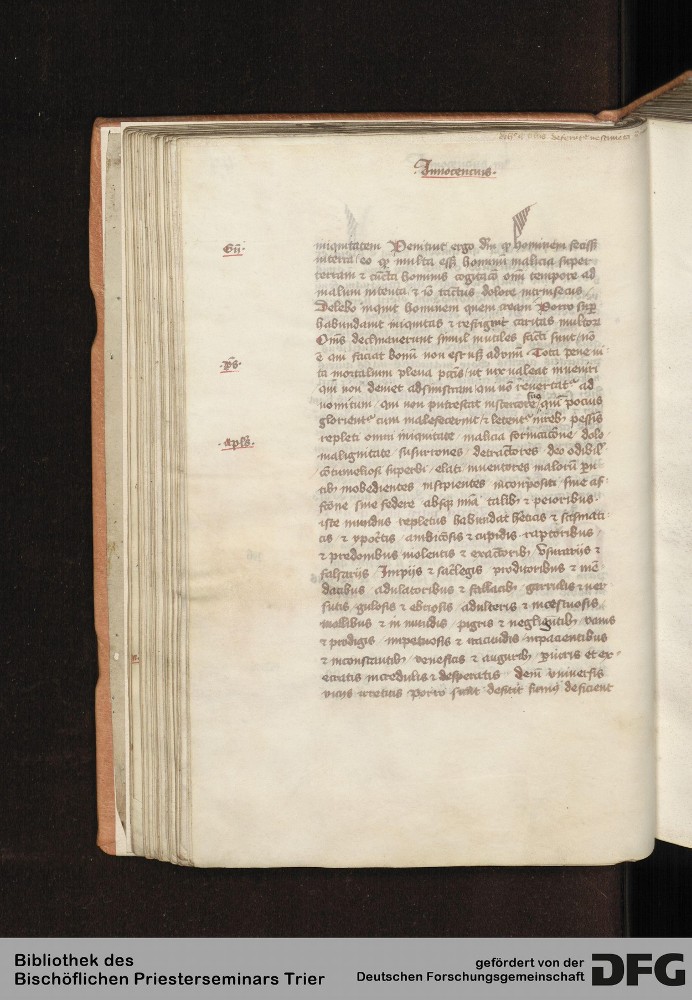 ·Innocencius·
Gen·
iniquitatem Penituit ergo dm̄ qz hominem fecisz
in terra eo qz multa essz hominū malicia super
terram & cūcta hominis cogitacō omi tempore ad
malum intenta & iō tactus dolore intrinsecus
Delebo inquit hominem quem creaui Porro supz
habundauit iniquitas & refriguit caritas multorz
Omēs declinauerunt simul inutiles facti sunt nō
ē qui faciat bonū non est usz ad vnū · Tota pene ui
·ps·
ta mortalium plena pctis ut vix valeat inueniri
qui non deuiet ad sinistram qui nō reuertatr ad
vomitum qui non putrescat in stercore suo qui pocius
glorientr cum malefecerint & letentr in rebz pessis
·Aplus·
repleti omni iniquitate malicia fornicacōne dolo
malignitate susurrones detractores deo odibil'
cōtumeliosi superbi elati inuentores malorū pn
tibz inobedientes insipientes incompositi sine af
fcōne sine federe absqz mīa talibz & peioribus
iste mundus repletus habundat hēticis & scismati
cis & ypoctis ambicōsis & cupidis raptoribus
& predonibus violentis & exactoribz vsurarijs &
falsarijs Impijs & sacilegis proditoribus & mē
dacibus adulatoribus & fallacibz garrulis & ver
sutis gulosis & ebriosis adulteris & incestuosis
mollibus & in mundis pigris & negligentibz vanis
& prodigis impetuosis & iracundis inpacientibus
& inconstantibz veneficis & auguribz piuris et ex
ecratis incredulis & desperatis dem̄ vniuersis
vicijs irretitis porro sicut deficit fumꝰ deficient
Bibliothek des
Bischöflichen Priesterseminars Trier
gefördert von der
Deutschen Forschungsgemeinschaft
DFG